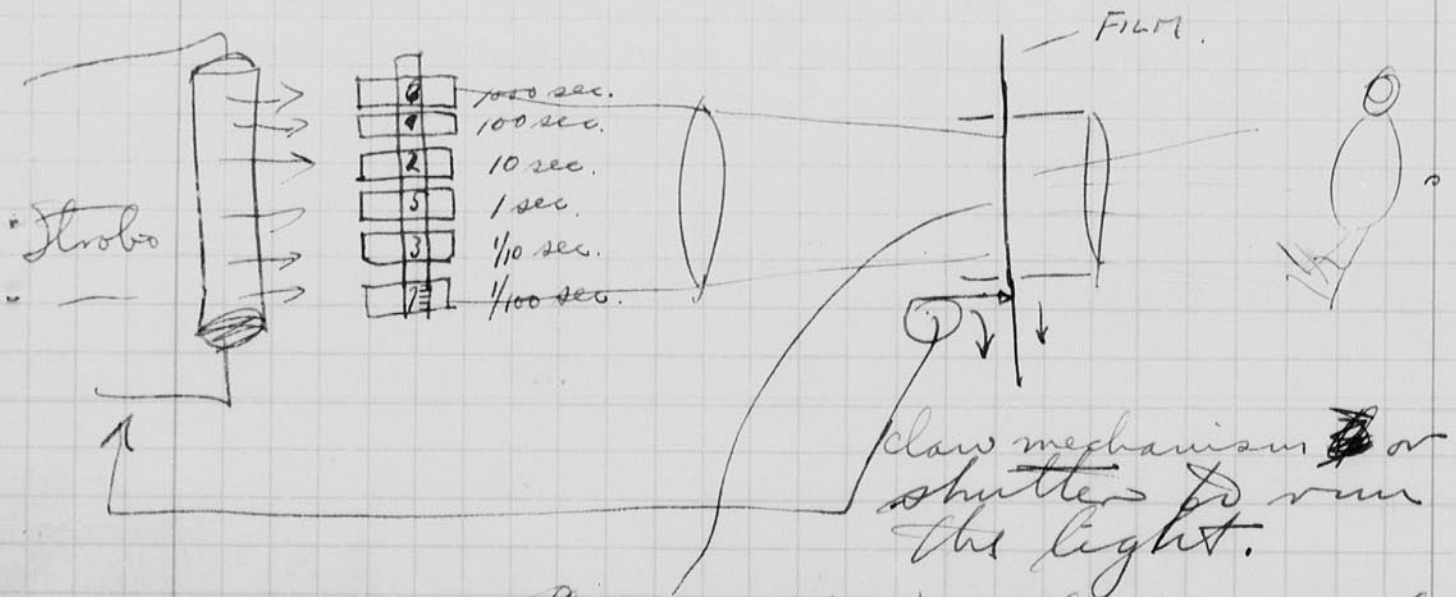 FILM.
1000 sec.
100 sec.
2 10 sec.
5 1 sec.
3 1/10 sec.
1/100 sec.
Strobo
claw mechanism or
shutter to run
the light.